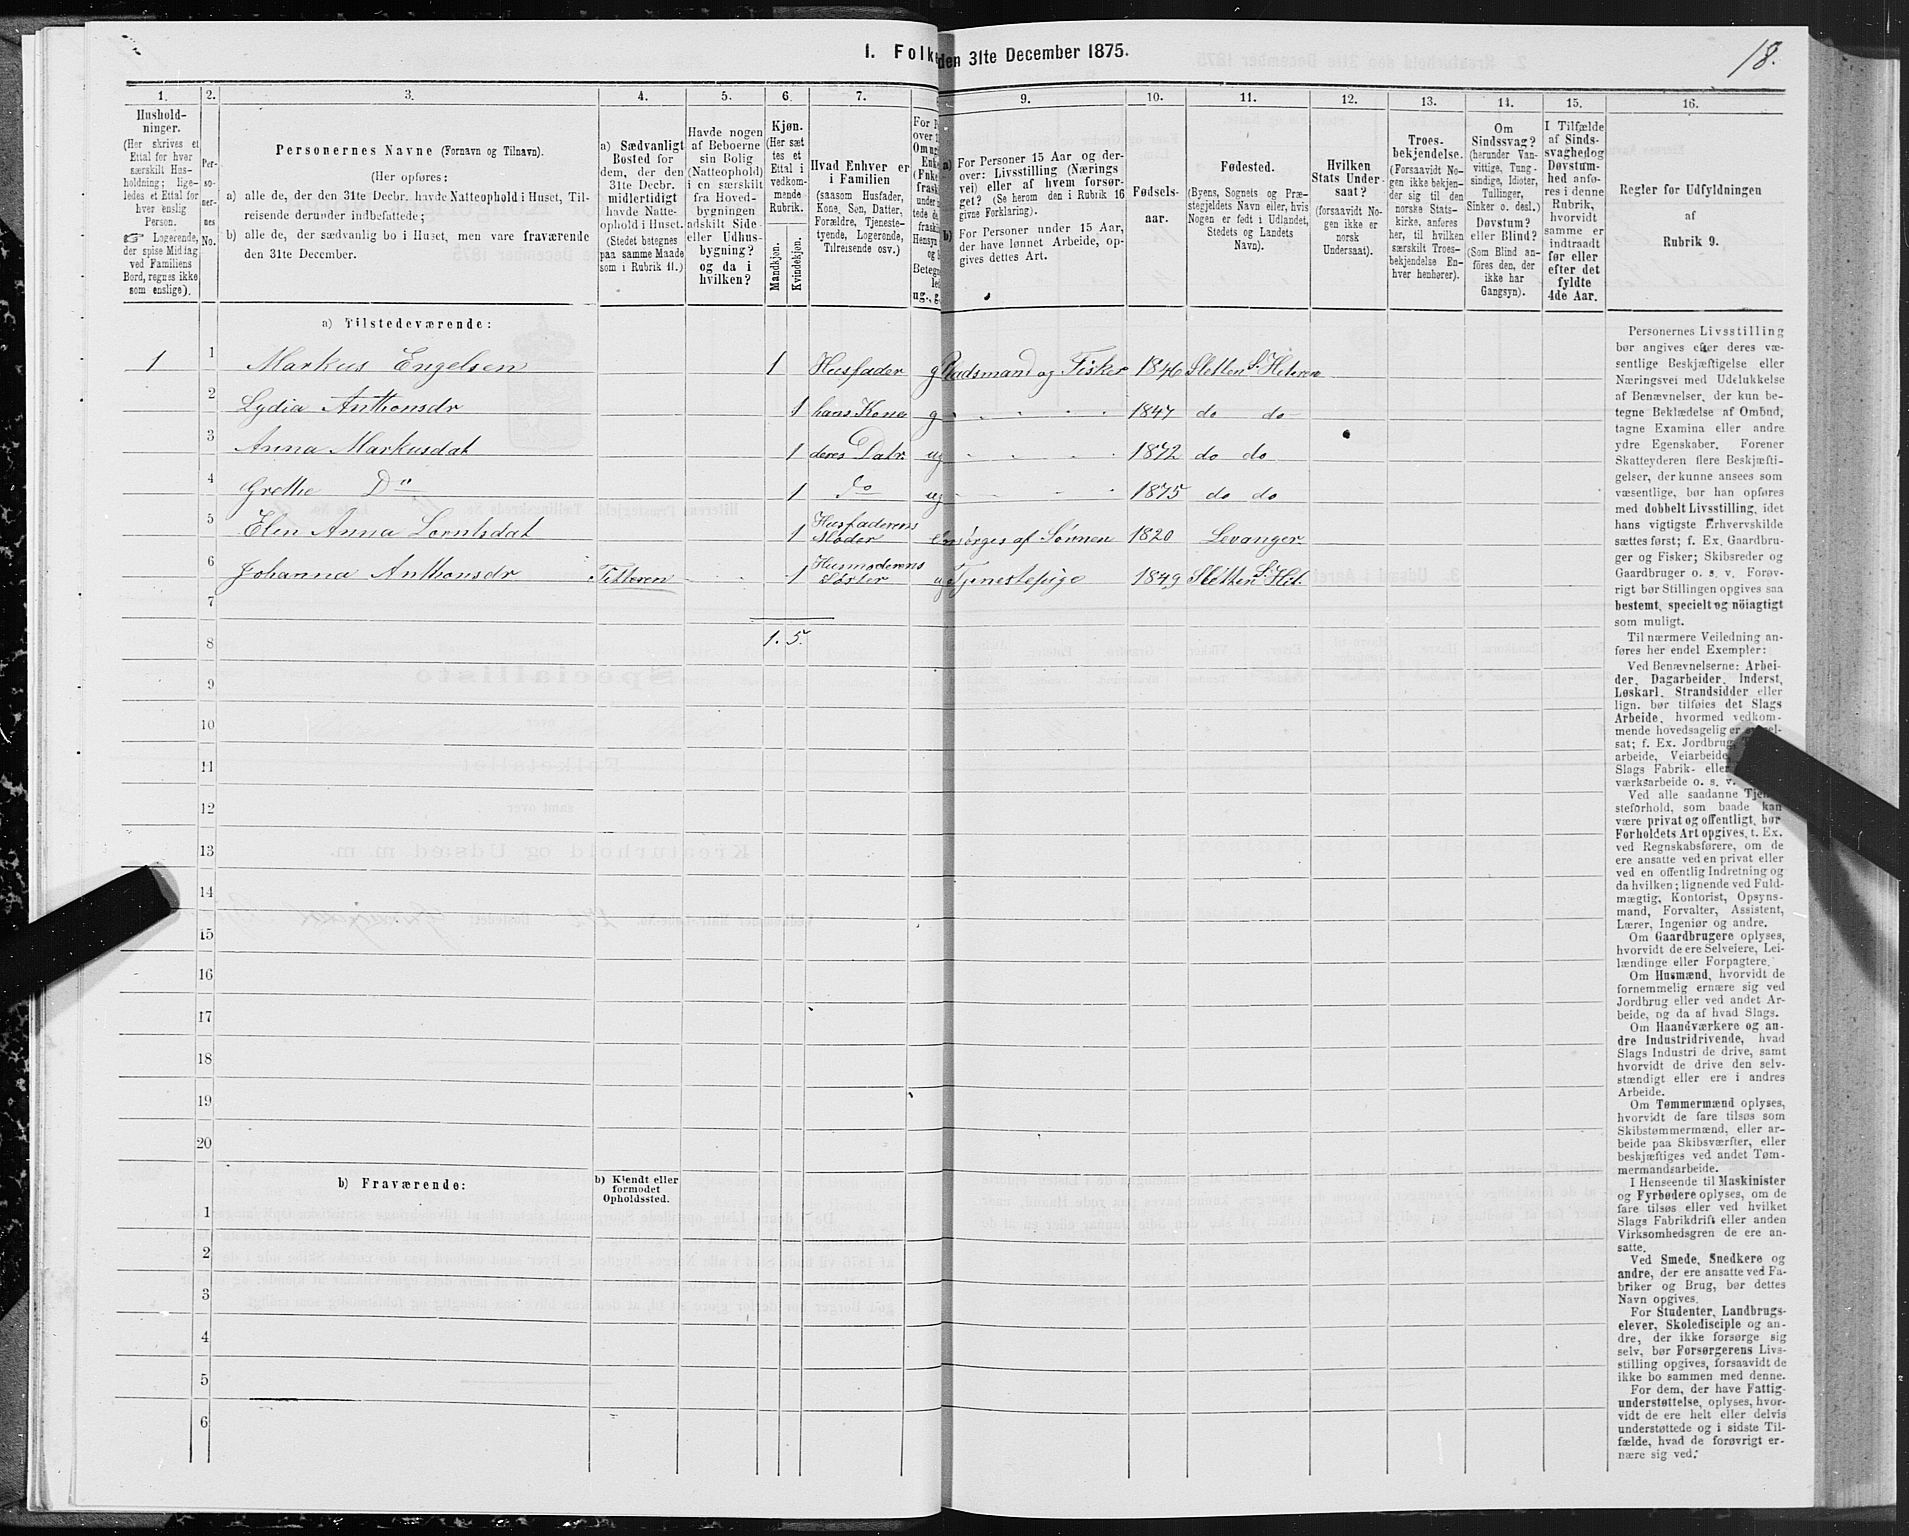 1. Folke
den 31te December 1875.
18.
1.
2.
3.
4.
5.
6.
7.
9.
10.
11.
12.
13.
14.
15.
16.
Hushold-
ninger.
(Her skrives et
Ettal for hver
særskilt Hus-
holdning; lige-
ledes et Ettal for
hver enslig
Person.
☞ Logerende,
der spise Middag
ved Familiens
Bord, regnes ikke
som enslige).
Per-
so-
ner-
nes
No.
Personernes Navne (Fornavn og Tilnavn).
(Her opføres:
a) alle de, der den 31te Decbr. havde Natteophold i Huset, Til-
reisende derunder indbefattede;
b) alle de, der sædvanlig bo i Huset, men vare fraværende
den 31te December.
a) Sædvanligt
Bosted for
dem, der den
31te Decbr.
midlertidigt
havde Natte-
ophold i Huset.
(Stedet betegnes
paa samme Maade
som i Rubrik 11.)
Havde nogen
af Beboerne
sin Bolig
(Natteophold)
i en særskilt
fra Hoved-
bygningen
adskilt Side-
eller Udhus-
bygning?
og da i
hvilken?
Kjøn.
(Her sæt
tes et
Ettal i
vedkom-
mende
Rubrik.
Mandkjøn.
Kvindekjøn.
Hvad Enhver er
i Familien
(saasom Husfader,
Kone, Søn, Datter,
Forældre, Tjeneste-
tyende, Logerende,
Tilreisende osv.)
a) For Personer 15 Aar og der-
over: Livsstilling (Nærings-
vei) eller af hvem forsør-
get? (Se herom den i Rubrik 16
givne Forklaring).
b) For Personer under 15 Aar,
der have lønnet Arbeide, op-
gives dettes Art.
Fødsels-
aar.
Fødested.
(Byens, Sognets og Præ-
stegjeldets Navn eller, hvis
Nogen er født i Udlandet,
Stedets og Landets
Navn).
Hvilken
Stats Under-
saat?
(forsaavidt No-
gen ikke er
norsk
Undersaat).
Troes-
bekjendelse.
(Forsaavidt No-
gen ikke bekjen-
der sig til den
norske Stats-
kirke, anføres
her, til hvilken
særskilt Troes-
bekjendelse En-
hver henhører).
Om
Sindssvag?
(herunder Van-
vittige, Tung-
sindige, Idioter,
Tullinger,
Sinker o. desl.)
Døvstum?
eller Blind?
(Som Blind an-
føres den, der
ikke har
Gangsyn).
I Tilfælde
af Sinds-
svaghed og
Døvstum-
hed anfø-
res i denne
Rubrik,
hvorvidt
samme er
indtraadt
før eller
efter det
fyldte
4de Aar.
Regler for Udfyldningen
af
Rubrik 9.
a) Tilstedeværende:
1 1 Markus Engelsen 1 Husfader g Pladsmand og Fisker 1846 Sletten S. Hiteren
2 Lydia Anthonsdr 1 hans Kona g 1847 do do
3 Anna Markusdat 1 deres Datr. ug 1872 do do
4 Grethe Do 1 do ug 1875 do do
5 Elen Anna Lorntsdat 1 Husfaderens Moder forsørges af Sønnen 1820 Levanger
6 Johanna Anthonsdr Titteren 1 Husmoderens Søster ug Tjenestepige 1849 Sletten S. Hit.
7
1. 5.
8
9
10
11
12
13
14
15
16
17
18
19
20
b) Fraværende:
b) Kjendt eller
formodet
Opholdssted.
1
2
3
4
5
6
Personernes Livsstilling
bør angives efter deres væ-
sentlige Beskjæftigelse eller
Næringsvei med Udelukkelse
af Benævnelser, der kun be-
tegne Beklædelse af Ombud,
tagne Examina eller andre
ydre Egenskaber. Forener
Skatteyderen flere Beskjæfti-
gelser, der kunne ansees som
væsentlige, bør han opføres
med dobbelt Livsstilling, idet
hans vigtigste Erhvervskilde
sættes først; f. Ex. Gaardbru-
ger og Fisker; Skibsreder og
Gaardbruger o. s. v. Forøv-
rigt bør Stillingen opgives saa
bestemt, specielt og nöiagtigt
som muligt.
Til nærmere Veiledning an-
føres her endel Exempler:
Ved Benævnelserne: Arbei-
der, Dagarbeider, Inderst,
Løskarl, Strandsidder eller
lign. bør tilføies det Slags
Arbeide, hvormed vedkom-
mende hovedsagelig er
sat; f. Ex. Jordbrug,
arbeide, Veiarbeide,
Slags Fabrik- eller
værksarbeide o. s. v.
Ved alle saadanne Tjene-
steforhold, som baade kan
være privat og offentligt, bør
Forholdets Art opgives, t. Ex.
ved Regnskabsførere, om de
ere ansatte ved en privat eller
ved en offentlig Indretning og
da hvilken; lignende ved Fuld-
mægtig, Kontorist, Opsyns-
mand, Forvalter, Assistent,
Lærer, Ingeniør og andre.
Om Gaardbrugere oplyses,
hvorvidt de ere Selveiere, Lei-
lændinge eller Forpagtere.
Om Husmænd, hvorvidt de
fornemmelig ernære sig ved
Jordbrug eller ved andet Ar-
beide, og da af hvad Slags.
Om Haandværkere og an-
dre Industridrivende, hvad
Slags Industri de drive, samt
hvorvidt de drive den selv-
stændigt eller ere i andres
Arbeide.
Om Tømmermænd oplyses,
hvorvidt de fare tilsøs som
Skibstømmermænd, eller ar-
beide paa Skibsværfter, eller
beskjæftiges ved andet Tøm-
mermandsarbeide.
I Henseende til Maskinister
og Fyrbødere oplyses, om de
fare tilsøs eller ved hvilket
Slags Fabrikdrift eller anden
Virksomhedsgren de ere an-
satte.
Ved Smede, Snedkere og
andre, der ere ansatte ved Fa-
briker og Brug, bør dettes
Navn opgives.
For Studenter, Landbrugs-
elever, Skoledisciple og an-
dre, der ikke forsørge sig
selv, bør Forsørgerens Livs-
stilling opgives, forsaavidt de
ikke bo sammen med denne.
For dem, der have Fattig-
understøttelse, oplyses, hvor-
vidt de ere helt eller delvis
understøttede og i sidste Til-
fælde, hvad de forøvrigt er-
nære sig ved.